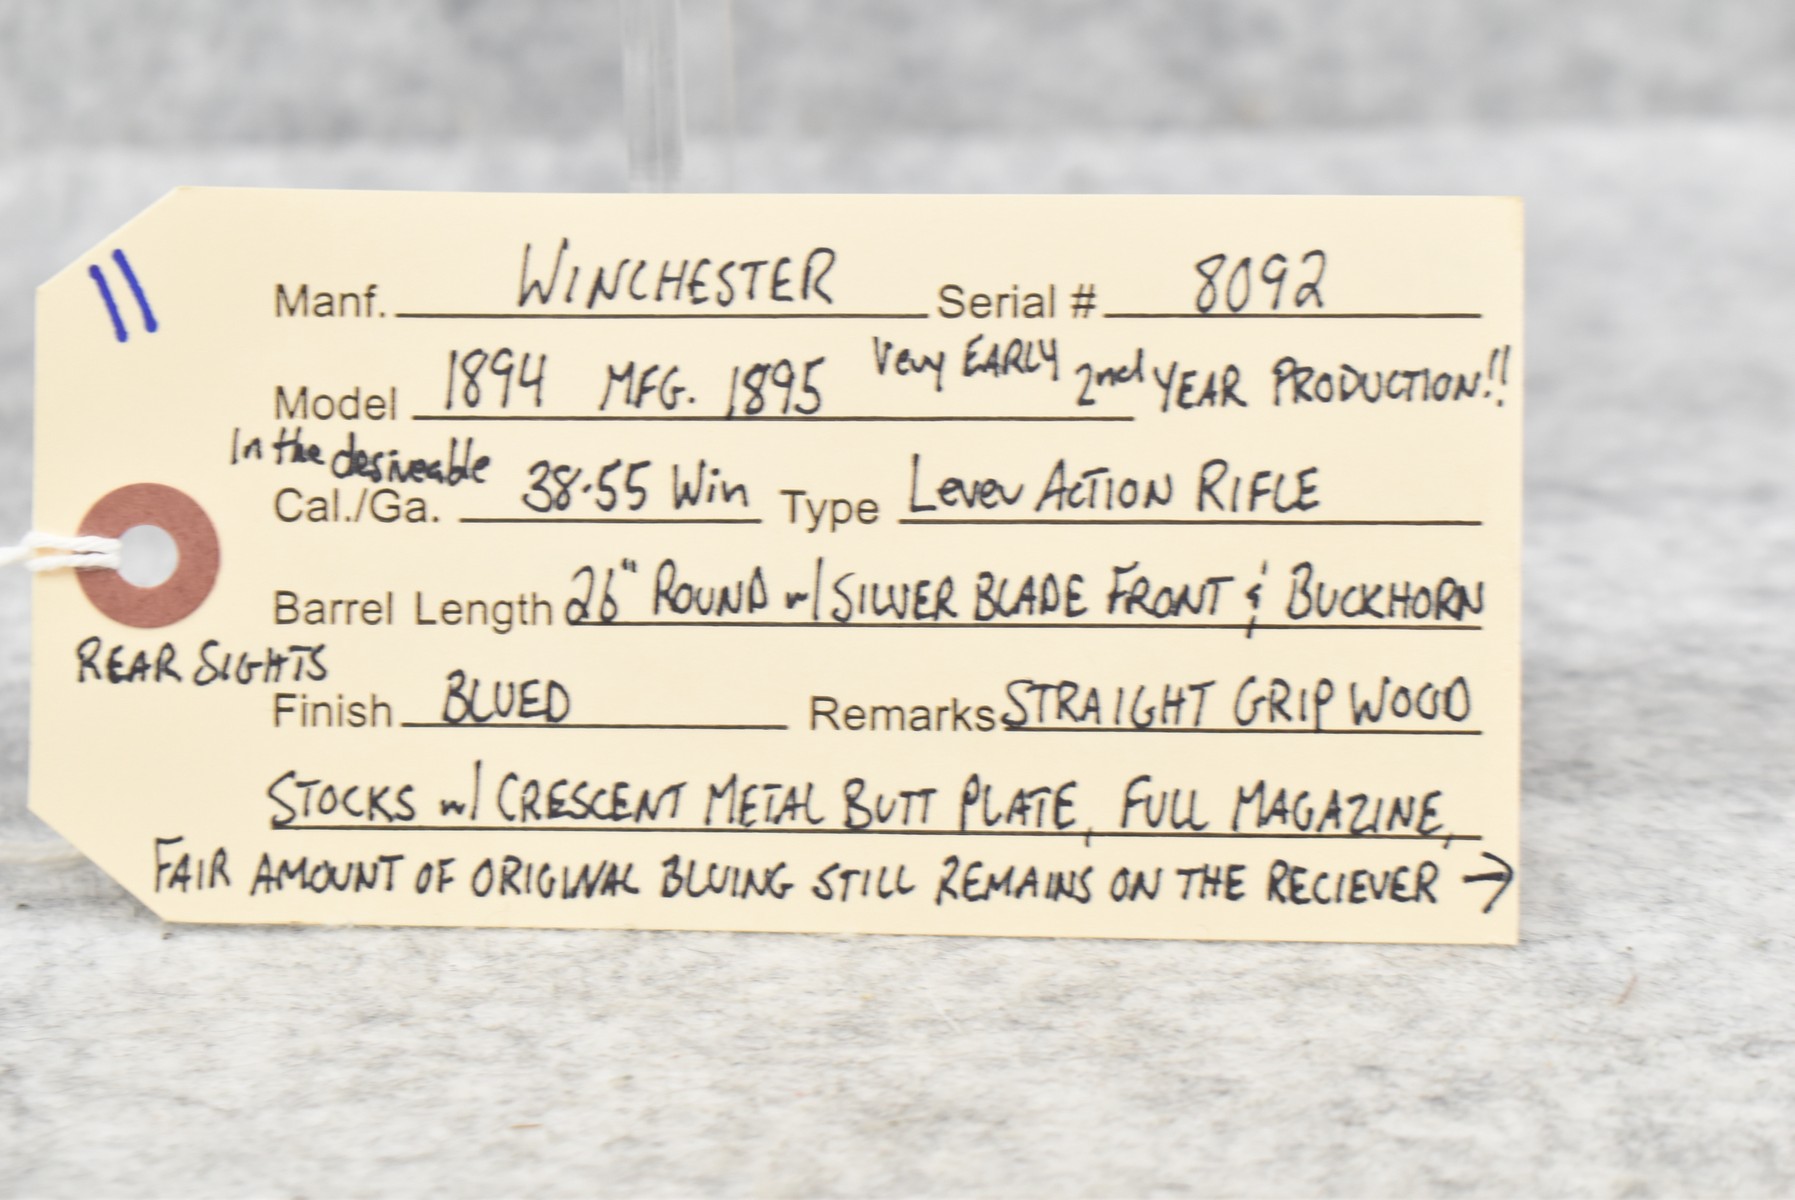 11
Manf. WINCHESTER Serial # 8092
Model 1894 MFG. 1895 Very EARLY 2nd YEAR PRODUCTION!!
In the desireable
Cal./Ga. 38-55 Win Type Lever ACTION RIFLE
Barrel Length 26" ROUND w/ SILVER BLADE FRONT & BUCKHORN
REAR SIGHTS
Finish BLUED Remarks STRAIGHT GRIP WOOD
STOCKS w/ CRESCENT METAL BUTT PLATE, FULL MAGAZINE,
FAIR AMOUNT OF ORIGINAL BLUING STILL REMAINS ON THE RECIEVER →